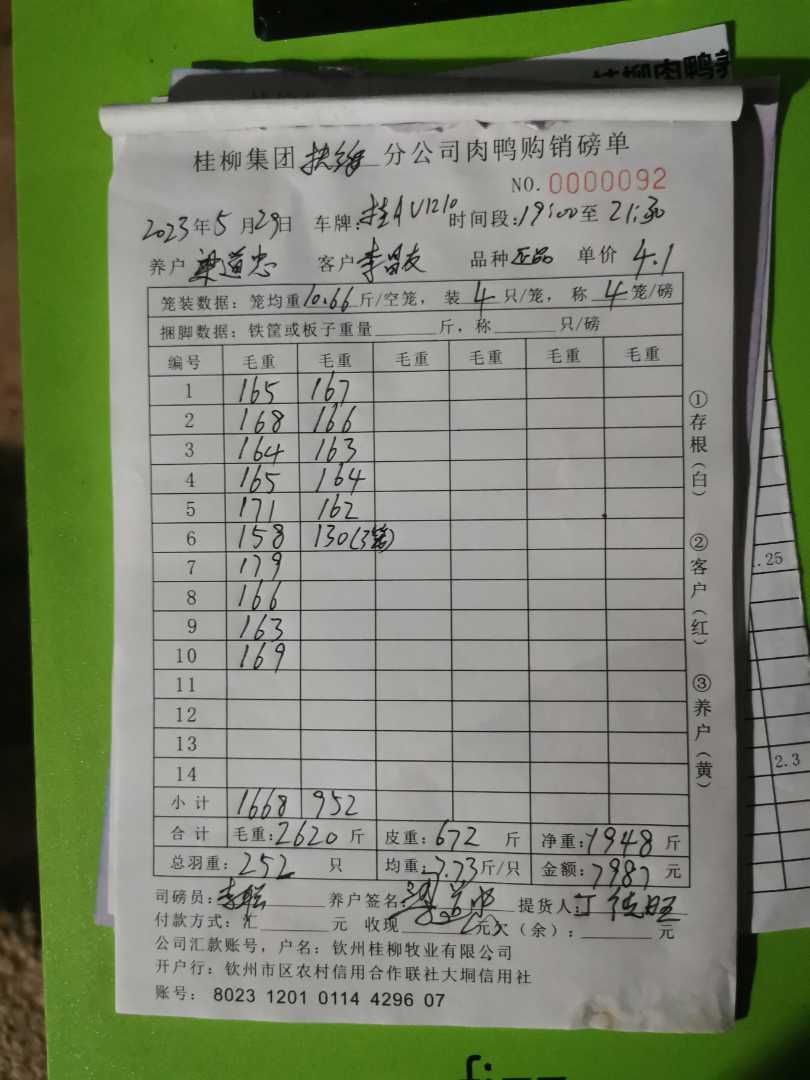 桂柳肉鸭养
桂柳集团扶绥分公司肉鸭购销磅单
NO. 0000092
2023年5月29日 车牌:桂AU1210 时间段:19:00至21:30
养户梁道忠 客户李昌友 品种正品 单价4.1
笼装数据: 笼均重10.66斤/空笼, 装4只/笼, 称4笼/磅
捆脚数据: 铁筐或板子重量____斤, 称____只/磅
编号 毛重 毛重 毛重 毛重 毛重 毛重
1 165 167
2 168 166
3 164 163
4 165 164
5 171 162
6 158 130(3笼)
7 179
8 166
9 163
10 169
11
12
13
14
小计 1668 952
合计 毛重:2620斤 皮重:672斤 净重:1948斤
总羽重:252只 均重:7.73斤/只 金额:7987元
司磅员: 养户签名:梁道忠 提货人:丁
付款方式: 汇____元 收现____元 欠(余):____元
公司汇款账号, 户名: 钦州桂柳牧业有限公司
开户行: 钦州市区农村信用合作联社大垌信用社
账号: 8023 1201 0114 4296 07
①存根(白)
②客户(红)
③养户(黄)
.25
2.3